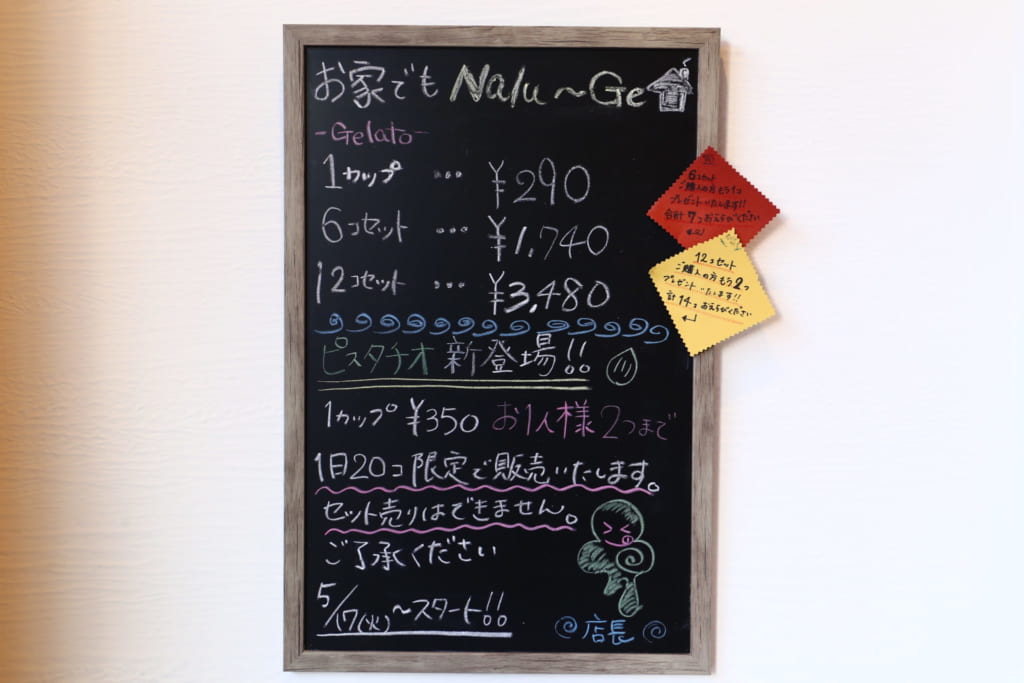 お家でも Nalu～Ge
-Gelato-
1カップ … ¥290
6コセット … ¥1,740
12コセット … ¥3,480
ピスタチオ 新登場!!
1カップ ¥350 お1人様 2つまで
1日20コ 限定で販売いたします。
セット売りはできません。
ご了承ください
5/17(火)～スタート!!
店長
6コセット
ご購入の方もう1コ
プレゼントいたします!!
合計 7つおえらびください
12コセット
ご購入の方もう2つ
プレゼントいたします!!
計 14コ おえらびください